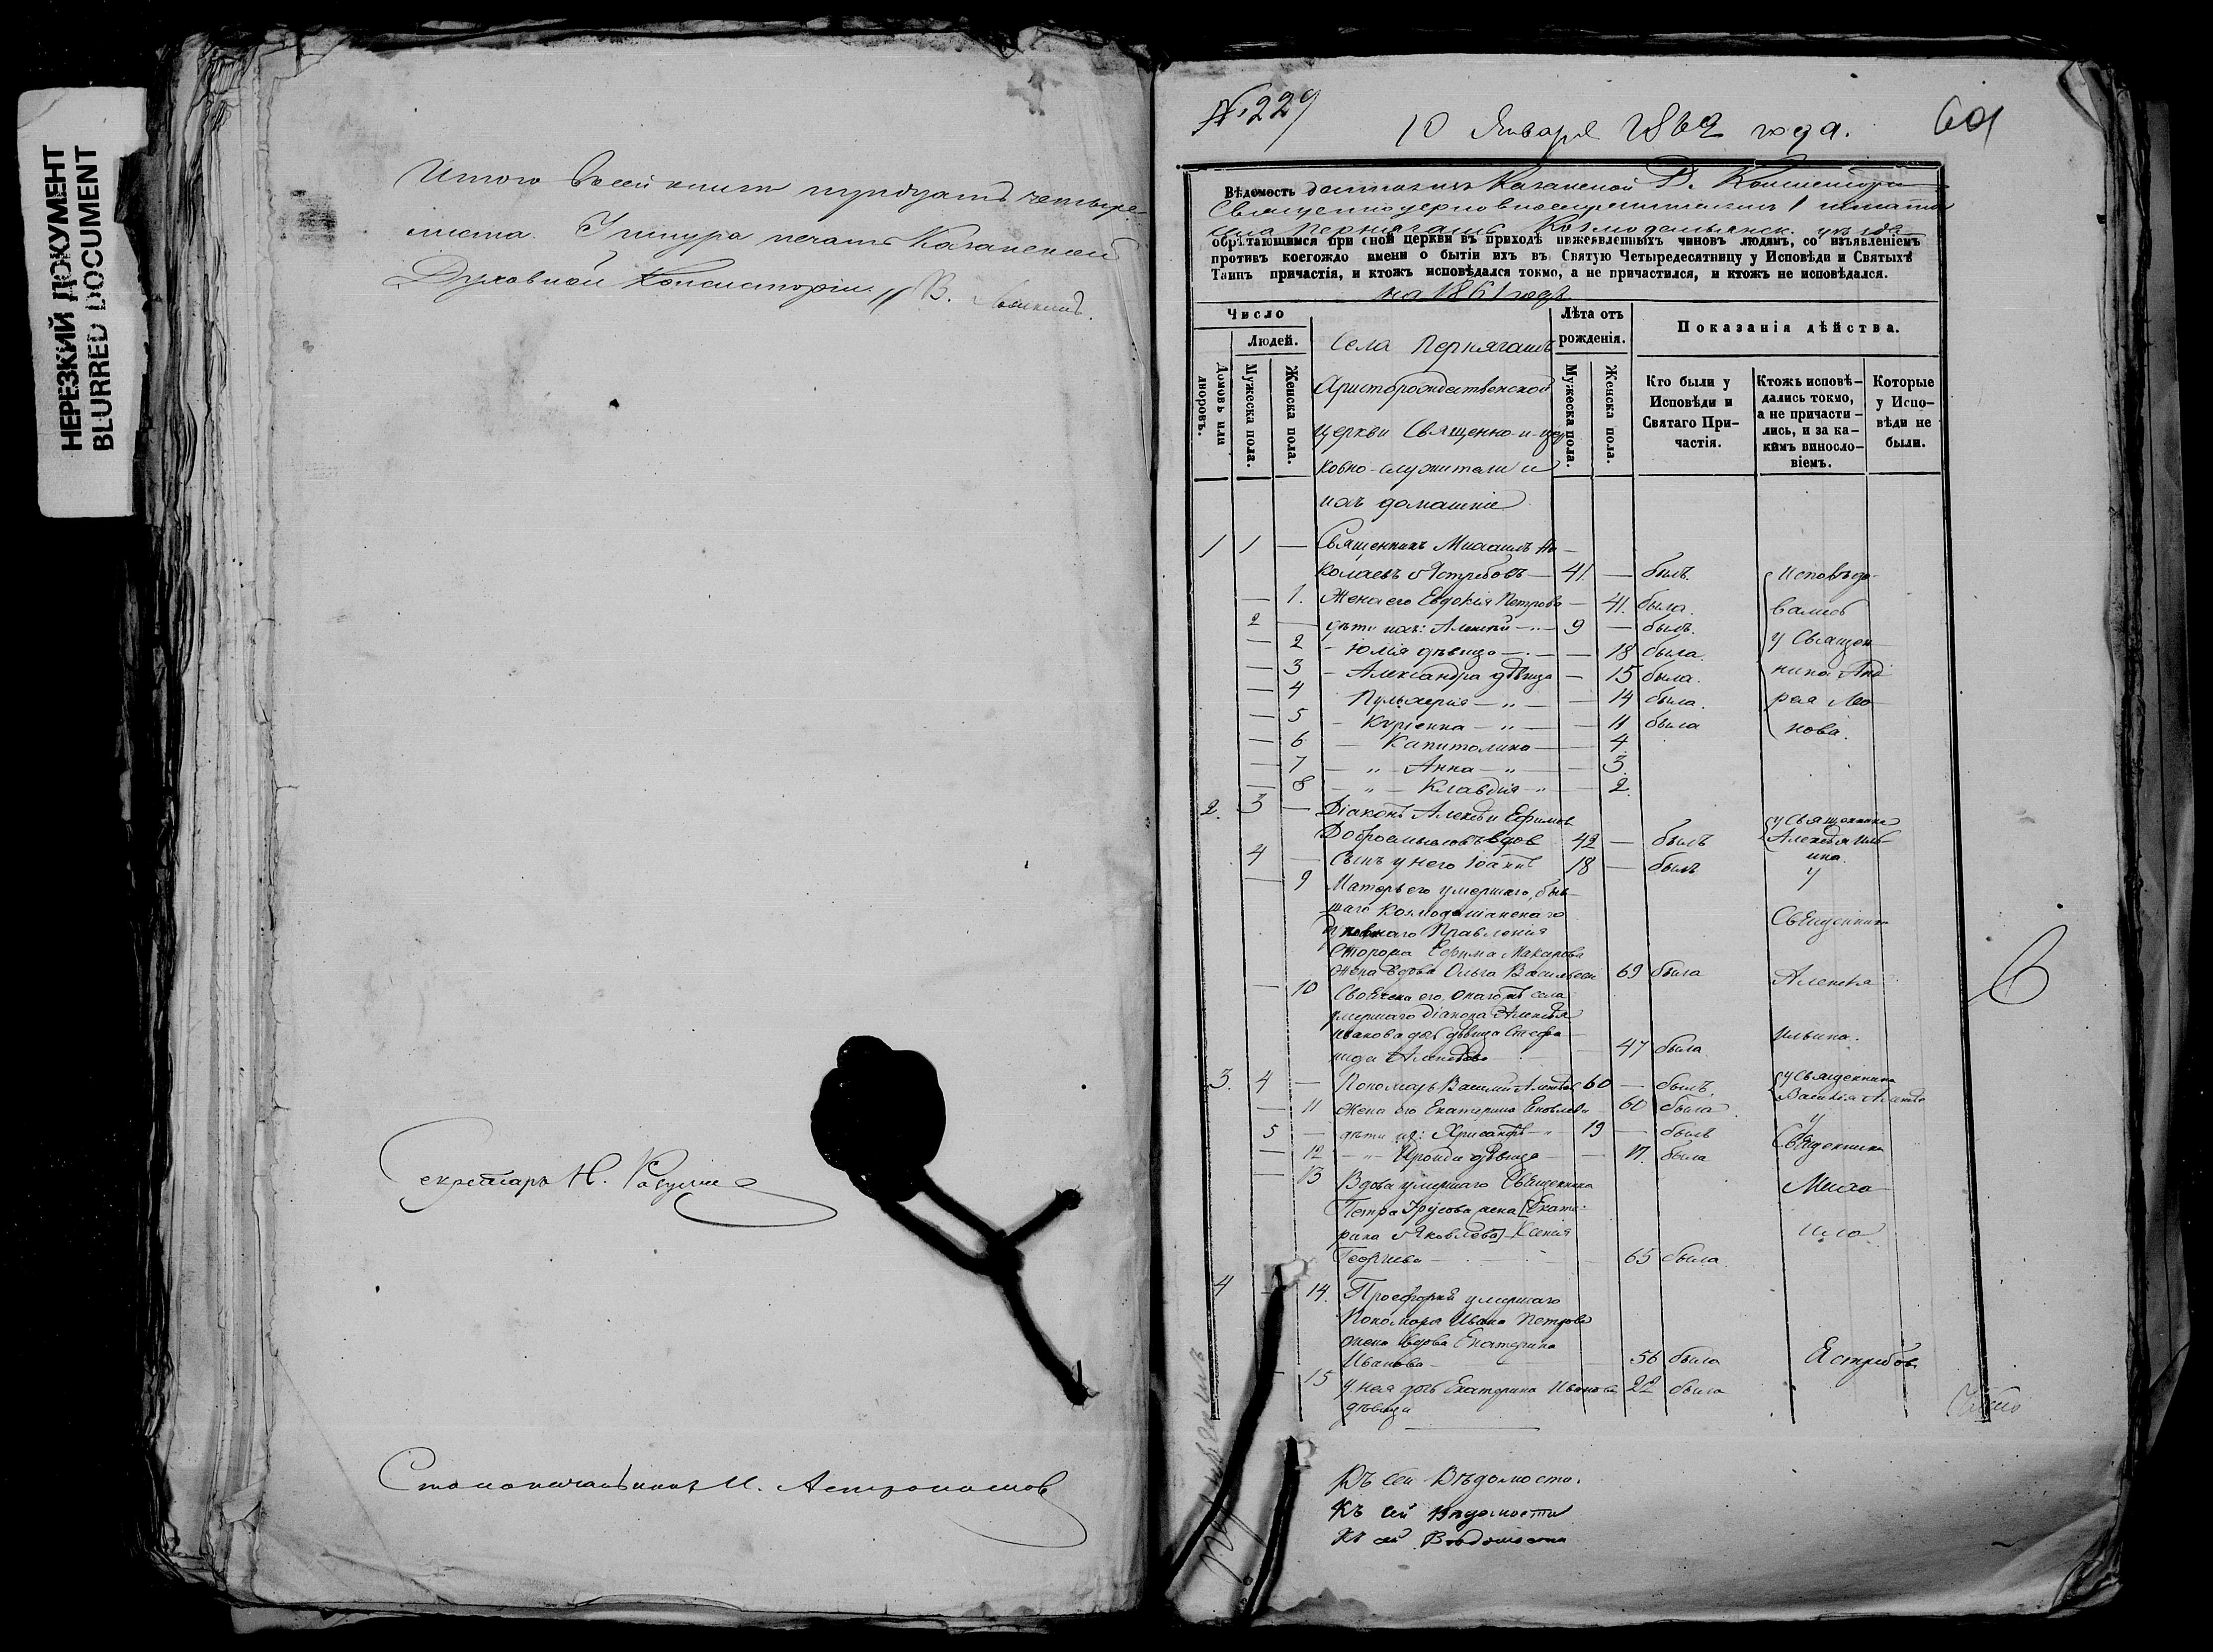 НЕРЕЗКИЙ ДОКУМЕНТ
BLURRED DOCUMENT
Итого в сей книге тридцать четыре
листа. У шнура печать Казанской
Духовной Консисторіи
Секретарь Н.
Столоначальникъ И.
№ 229
10 Января 1862 года.
Вѣдомость Казанской Д. Консисторіи
села Пернягашъ Козмодемьянск. уѣзда
обрѣтающимся при оной церкви въ приходѣ нижеявленныхъ чиновъ людямъ, со изъявленіемъ
противъ коегождо имени о бытіи ихъ въ Святую Четыредесятницу у Исповѣди и Святыхъ
Таинъ причастія, и ктожъ исповѣдался токмо, а не причастился, и ктожъ не исповѣдался.
на 1861 годъ
Число
Домовъ или дворовъ.
Людей.
Мужеска пола.
Женска пола.
Села Пернягашъ
Христорождественской
церкви Священно-и-цер
ковно-служители и
ихъ домашніе
Лѣта отъ
рожденія.
Мужеска пола.
Женска пола.
Показанія дѣйства.
Кто были у
Исповѣди и
Святаго При-
частія.
Ктожъ исповѣ-
дались токмо,
а не причасти-
лись, и за ка-
кимъ виносло-
віемъ.
Которые
у Испо-
вѣди не
были.
1 1 — Священникъ Михаилъ Ни-
колаевъ Ястребовъ — 41. — былъ. Исповѣдо-
— 1. Жена его Евдокія Петрова — 41. была. вались
2 — дѣти ихъ: Алексѣй — 9 — былъ.
— 2 — Юлія дѣвица — 18 была. у Священ-
— 3 — Александра дѣвица — 15 была. ника Анд
— 4 Пульхерія — „ — 14 была. рея Лео
— 5 — — „ — 11 была нова.
— 6 — Капитолина — 4.
— 7 — „ — Анна — „ — 3.
— 8 — „ — Клавдія — „ — 2.
2. 3 — Діаконъ Алексѣй Ефимовъ у Священника
Добросмысловъ вдов 42 — былъ Алексѣя Иль-
4 — Сынъ у него Іоаннъ 18 — былъ ина.
— 9 Матерь его умершаго, быв- у
шаго Козмодемьянскаго
Правленія Священника
Сторожа Ефима Максимова
жена вдова Ольга Васильева 69 была Алексѣя
— 10 Своячена его, онаго жъ села
умершаго діакона Алексѣя
Иванова дочь дѣвица Стефа- Ильина.
нида Алексѣева — 47 была
3. 4 — Пономарь Василій 60 — былъ, у священника
— 11 Жена его Екатерина Яковлева 60 была
5 — дѣти их: Хрисанфъ — „ 19 — былъ у
— 12 — „ — Ираида дѣвица — — 17. была Священника
13 Вдова умершаго Священника Миха-
Петра жена [Екате-
рина Яковлева] Ксенія ила
Георгіева — 65 была.
4 — 14. Просфорня умершаго
Пономаря Ивана Петрова
жена вдова Екатерина
Иванова — 56 была Ястребов
15 У нея дочь Екатерина Иванова 22 была
дѣвица
Къ сей Вѣдомости.
Къ сей Вѣдомости
Къ сей Вѣдомости